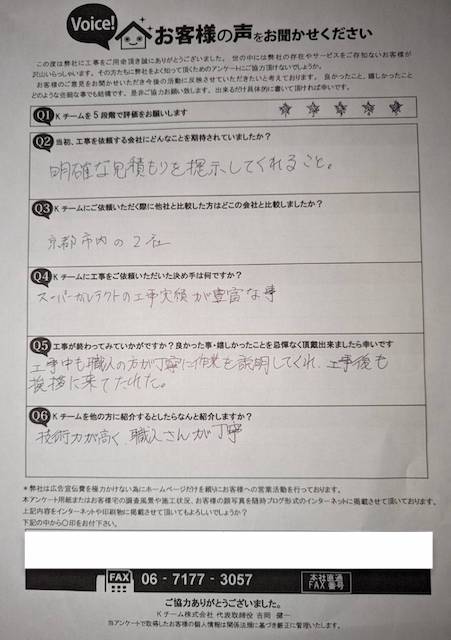 Voice! お客様の声をお聞かせください
この度は弊社に工事をご用命頂き誠にありがとうございました。 世の中には弊社の存在やサービスをご存知ないお客様が
沢山いらっしゃいます。その方たちも弊社をよく知って頂くためのアンケートにご協力頂けないでしょうか。
お客様のご意見をお聞かせいただき今後の活動に反映させていただきたいと考えております。 良かったこと、嬉しかったこと
どのような些細な事でも結構です。是非ご協力お願い致します。出来るだけ具体的に書いて頂ければ幸いです。
Q1 Kチームを5段階で評価をお願いします
Q2 当初、工事を依頼する会社にどんなことを期待されていましたか?
明確な見積もりを提示してくれること。
Q3 Kチームにご依頼いただく際に他社と比較した方はどこの会社と比較しましたか?
京都市内の2社
Q4 Kチームに工事をご依頼いただいた決め手は何ですか?
スーパーガルテクトの工事実績が豊富な事
Q5 工事が終わってみていかがですか?良かった事・嬉しかったことを忌憚なく頂戴出来ましたら幸いです
工事中も職人の方が丁寧に作業を説明してくれ、工事後も
挨拶に来てくれた。
Q6 Kチームを他の方に紹介するとしたらなんと紹介しますか?
技術力が高く 職人さんが丁寧
*弊社は広告宣伝費を極力かけない為にホームページだけを頼りにお客様への営業活動を行っております。
本アンケート用紙またはお客様宅の調査風景や施工状況、お客様の顔写真を随時ブログ形式のインターネットに掲載させて頂いております。
上記内容をインターネットや印刷物に掲載させて頂いてもよろしいでしょうか?
下記の中から〇印をお付下さい。
FAX 06-7177-3057 本社直通 FAX番号
ご協力ありがとうございました。
Kチーム株式会社 代表取締役 吉岡 健一
当アンケートで取得したお客様の個人情報は関係法規に基づき厳正に管理いたします。